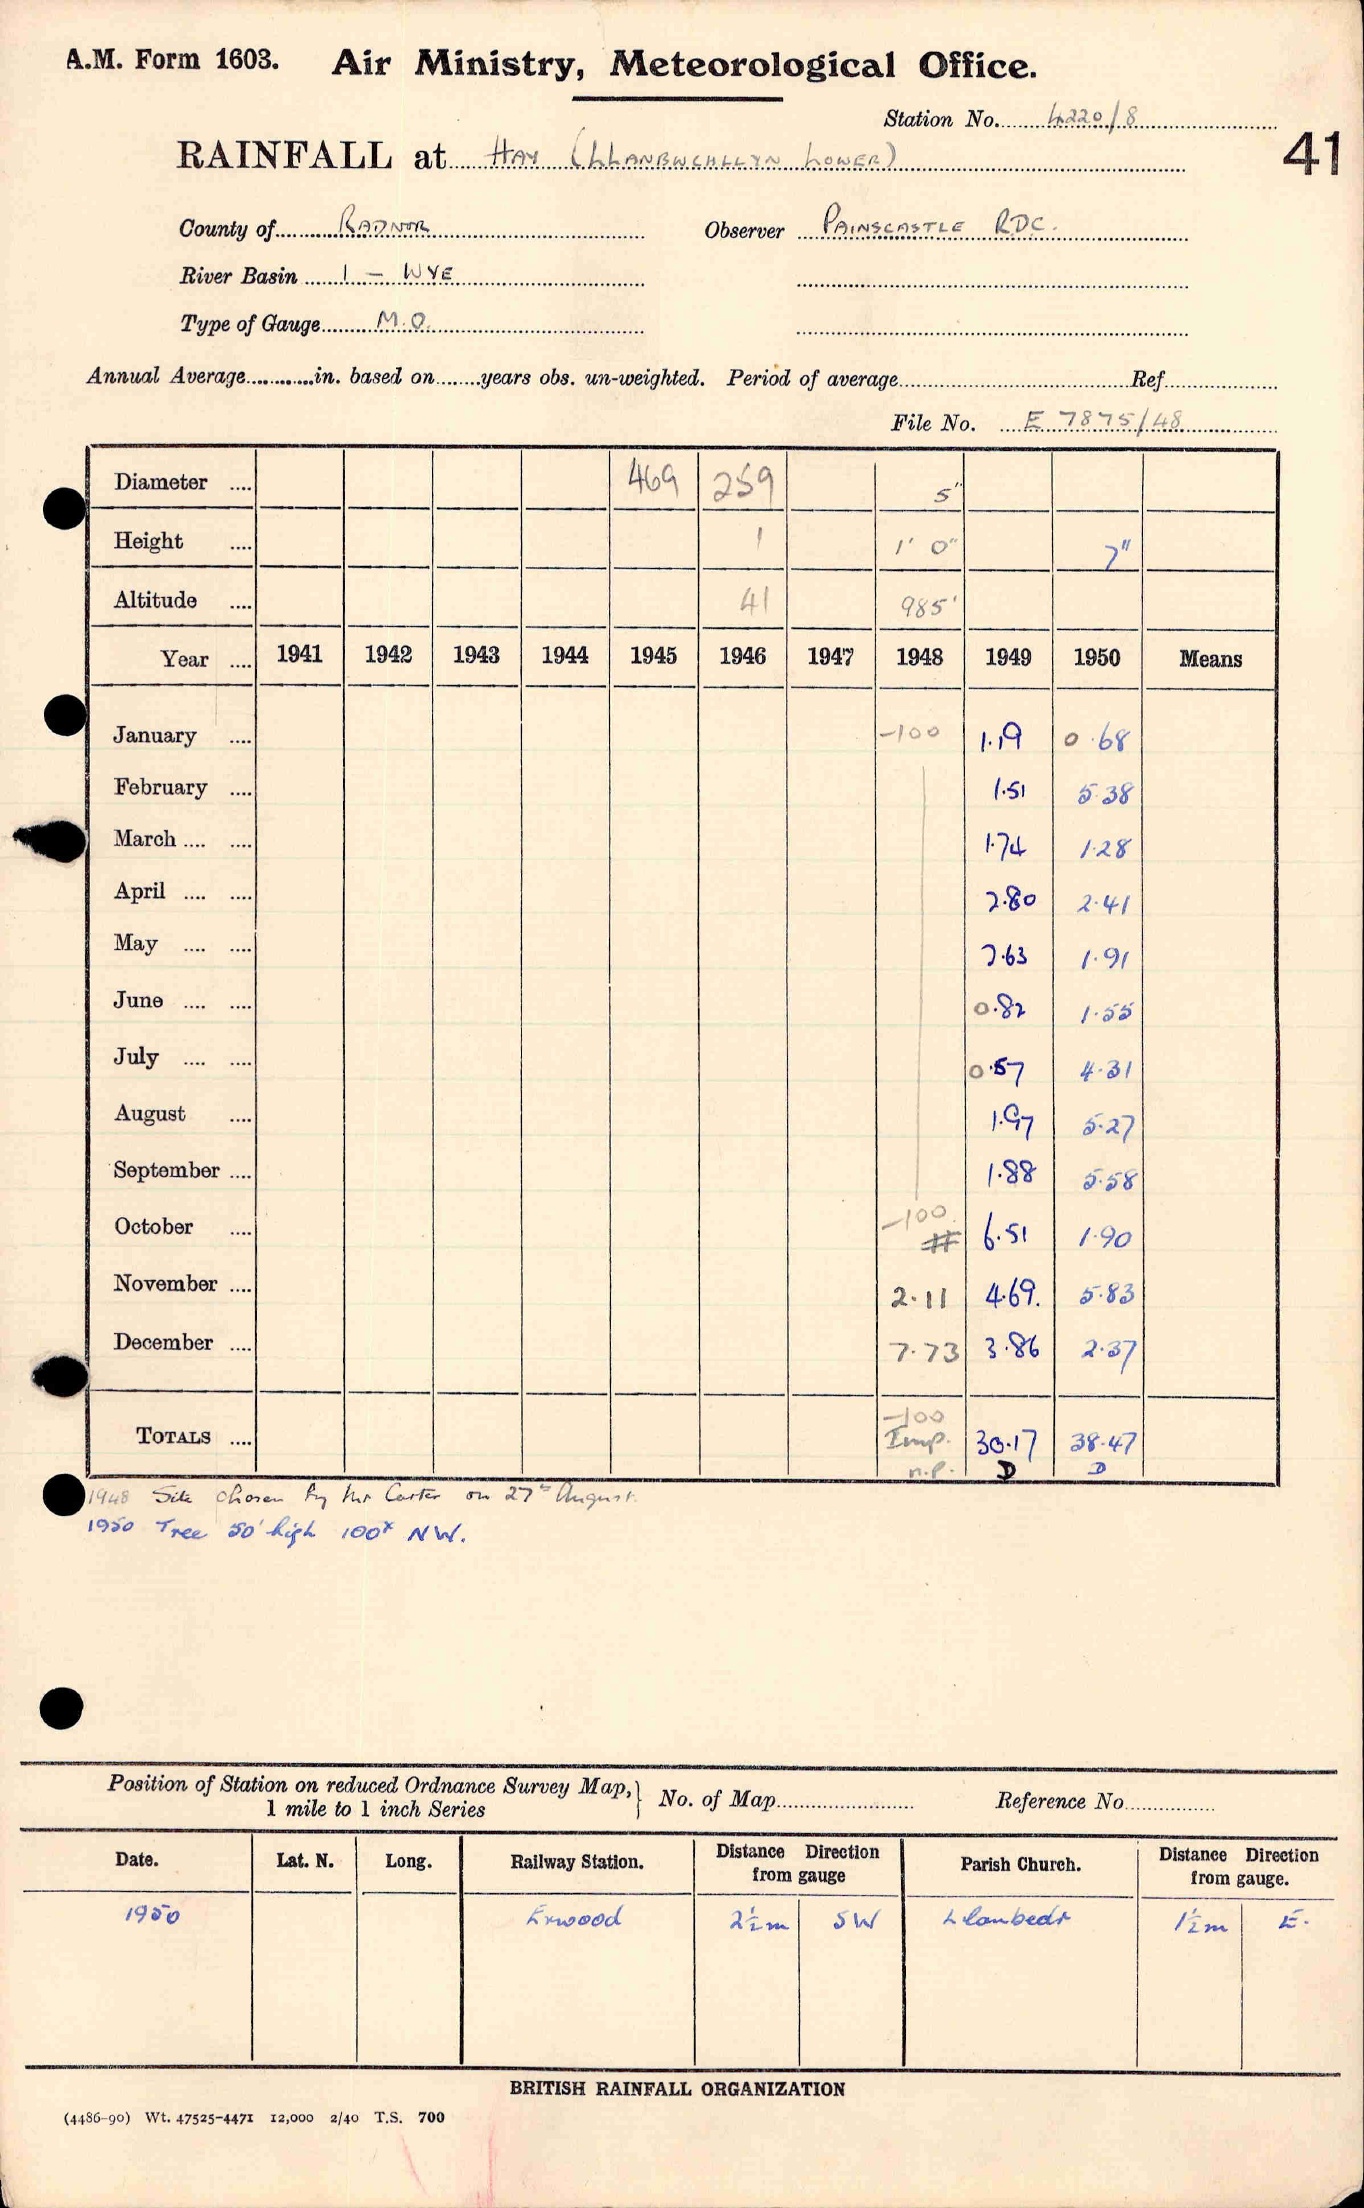 A.M. Form 1603. Air Ministry, Meteorological Office.
Station No. 4220/8
41
RAINFALL at HAY (LLANBWCHLLYN LOWER)
County of RADNOR Observer PAINSCASTLE RDC.
River Basin 1 - WYE
Type of Gauge M.O.
Annual Average............in. based on........years obs. un-weighted. Period of average........ Ref........
File No. E 7875/48
Diameter .... 469 259 5"
Height .... 1 1' 0" 7"
Altitude .... 41 985'
Year .... 1941 1942 1943 1944 1945 1946 1947 1948 1949 1950 Means
January .... -100 1.19 0.68
February .... 1.51 5.38
March .... .... 1.74 1.28
April .... .... 2.80 2.41
May .... .... 2.63 1.91
June .... .... 0.82 1.55
July .... .... 0.57 4.31
August .... 1.97 5.27
September .... 1.88 5.58
October .... -100 # 6.51 1.90
November .... 2.11 4.69. 5.83
December .... 7.73 3.86 2.37
TOTALS .... -100 Imp. n.p. 30.17 D 38.47 D
1948 Site chosen by Mr Carter on 27th August.
1950 Tree 50' high 100x NW.
Position of Station on reduced Ordnance Survey Map,
1 mile to 1 inch Series } No. of Map........ Reference No........
Date. Lat. N. Long. Railway Station. Distance Direction from gauge Parish Church. Distance Direction from gauge.
1950 Erwood 2½m SW Llanbedr 1½m E.
BRITISH RAINFALL ORGANIZATION
(4486-90) Wt. 47525-4471 12,000 2/40 T.S. 700